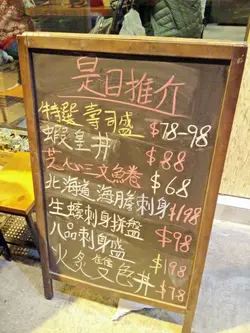 是日推介
特選壽司盛 $78-98
蝦皇丼
芝心三文魚卷 $88
北海道海膽刺身 $68
生蠔刺身拼盤 $198
八品刺身盛 $98
火炙雙色丼 $198
$78